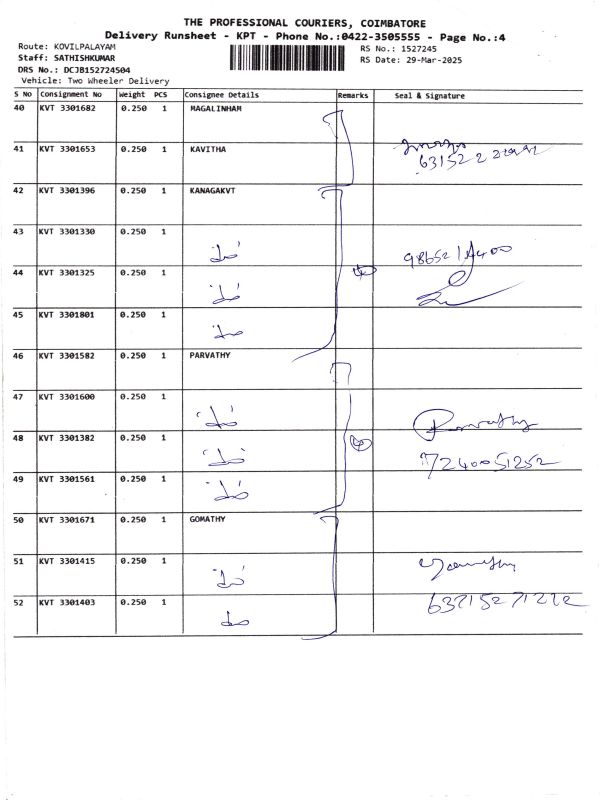 THE PROFESSIONAL COURIERS, COIMBATORE
Delivery Runsheet - KPT - Phone No.:0422-3505555 - Page No.:4
Route: KOVILPALAYAM
RS No.: 1527245
Staff: SATHISHKUMAR
RS Date: 29-Mar-2025
DRS No.: DCJB152724504
Vehicle: Two Wheeler Delivery
S No Consignment No Weight PCS Consignee Details Remarks Seal & Signature
40 KVT 3301682 0.250 1 MAGALINHAM
41 KVT 3301653 0.250 1 KAVITHA
42 KVT 3301396 0.250 1 KANAGAKVT
43 KVT 3301330 0.250 1
44 KVT 3301325 0.250 1
45 KVT 3301801 0.250 1
46 KVT 3301582 0.250 1 PARVATHY
47 KVT 3301600 0.250 1
48 KVT 3301382 0.250 1
7240051252
49 KVT 3301561 0.250 1
50 KVT 3301671 0.250 1 GOMATHY
51 KVT 3301415 0.250 1
52 KVT 3301403 0.250 1